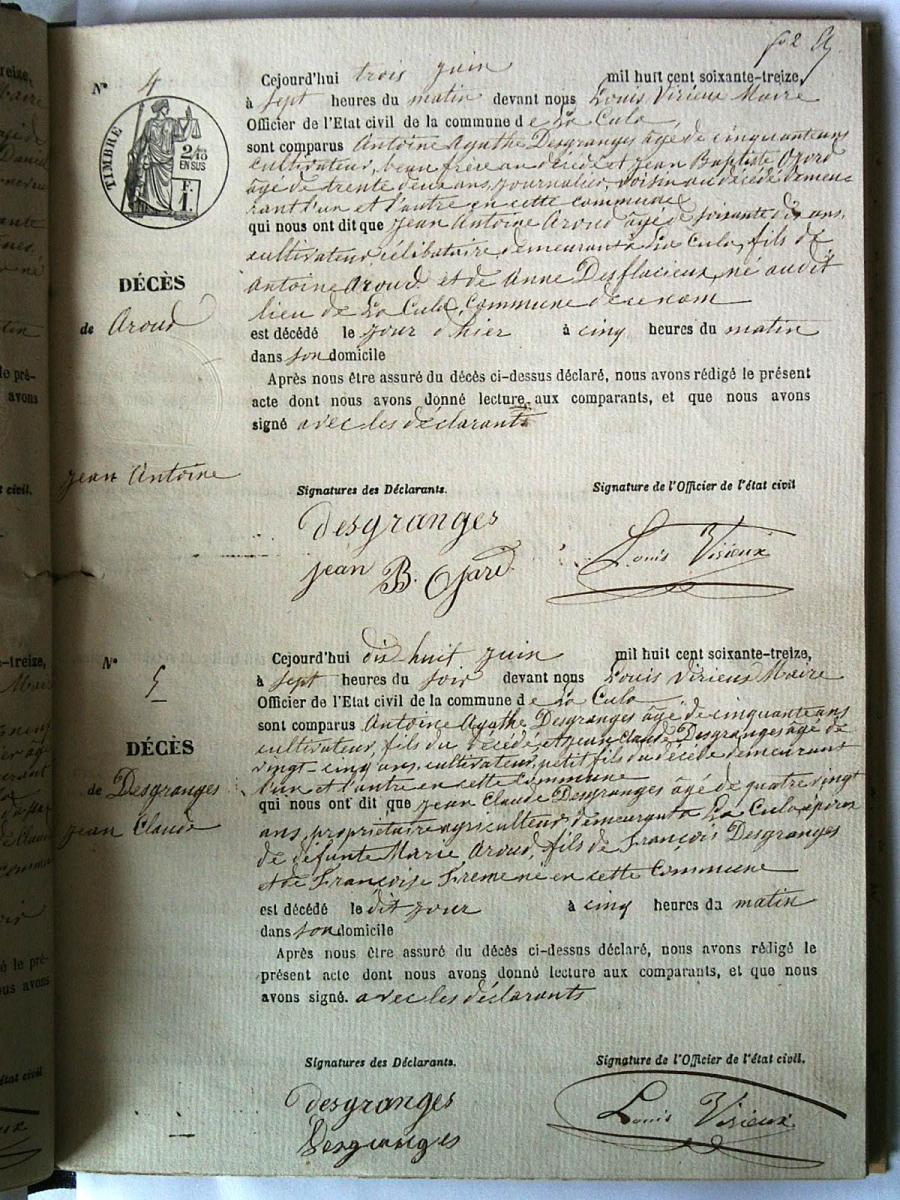 fo 2
N° 4
TIMBRE
2/10
EN SUS
F.
1.
DÉCÈS
de Aroud
Jean Antoine
Cejourd'hui trois juin mil huit cent soixante-treize,
à sept heures du matin devant nous Louis Virieux Maire
Officier de l'Etat civil de la commune de La Cula
sont comparus Antoine Agathe Desgranges âgé de cinquante ans
cultivateur, beau frère au décédé et Jean Baptiste Ojard
âgé de trente deux ans, journalier, voisin au décédé demeu-
rant l'un et l'autre en cette commune
qui nous ont dit que Jean Antoine Aroud âgé de soixante dix ans,
cultivateur, célibataire demeurant à La Cula, fils de
Antoine Aroud et de Anne Desflacieux, né audit
lieu de La Cula, Commune de ce nom
est décédé le jour d'hier à cinq heures du matin
dans son domicile
Après nous être assuré du décès ci-dessus déclaré, nous avons rédigé le présent
acte dont nous avons donné lecture aux comparants, et que nous avons
signé avec les déclarants
Signatures des Déclarants. Signature de l'Officier de l'état civil
desgranges
jean B. Ojard Louis Virieux
N° 5
DÉCÈS
de Desgranges
Jean Claude
Cejourd'hui dix huit juin mil huit cent soixante-treize,
à sept heures du soir devant nous Louis Virieux Maire
Officier de l'Etat civil de la commune de La Cula
sont comparus Antoine Agathe Desgranges âgé de cinquante ans
cultivateur, fils du décédé et Jean Claude Desgranges âgé de
vingt-cinq ans, cultivateur, petit fils du décédé demeurant
l'un et l'autre en cette Commune
qui nous ont dit que Jean Claude Desgranges âgé de quatre vingt
ans, propriétaire agriculteur demeurant à La Cula, époux
de défunte Marie Aroud, fils de François Desgranges
et de Françoise Freme né en cette Commune
est décédé le dit jour à cinq heures du matin
dans son domicile
Après nous être assuré du décès ci-dessus déclaré, nous avons rédigé le
présent acte dont nous avons donné lecture aux comparants, et que nous
avons signé. avec les déclarants
Signatures des Déclarants. Signature de l'Officier de l'état civil.
desgranges
Desgranges Louis Virieux